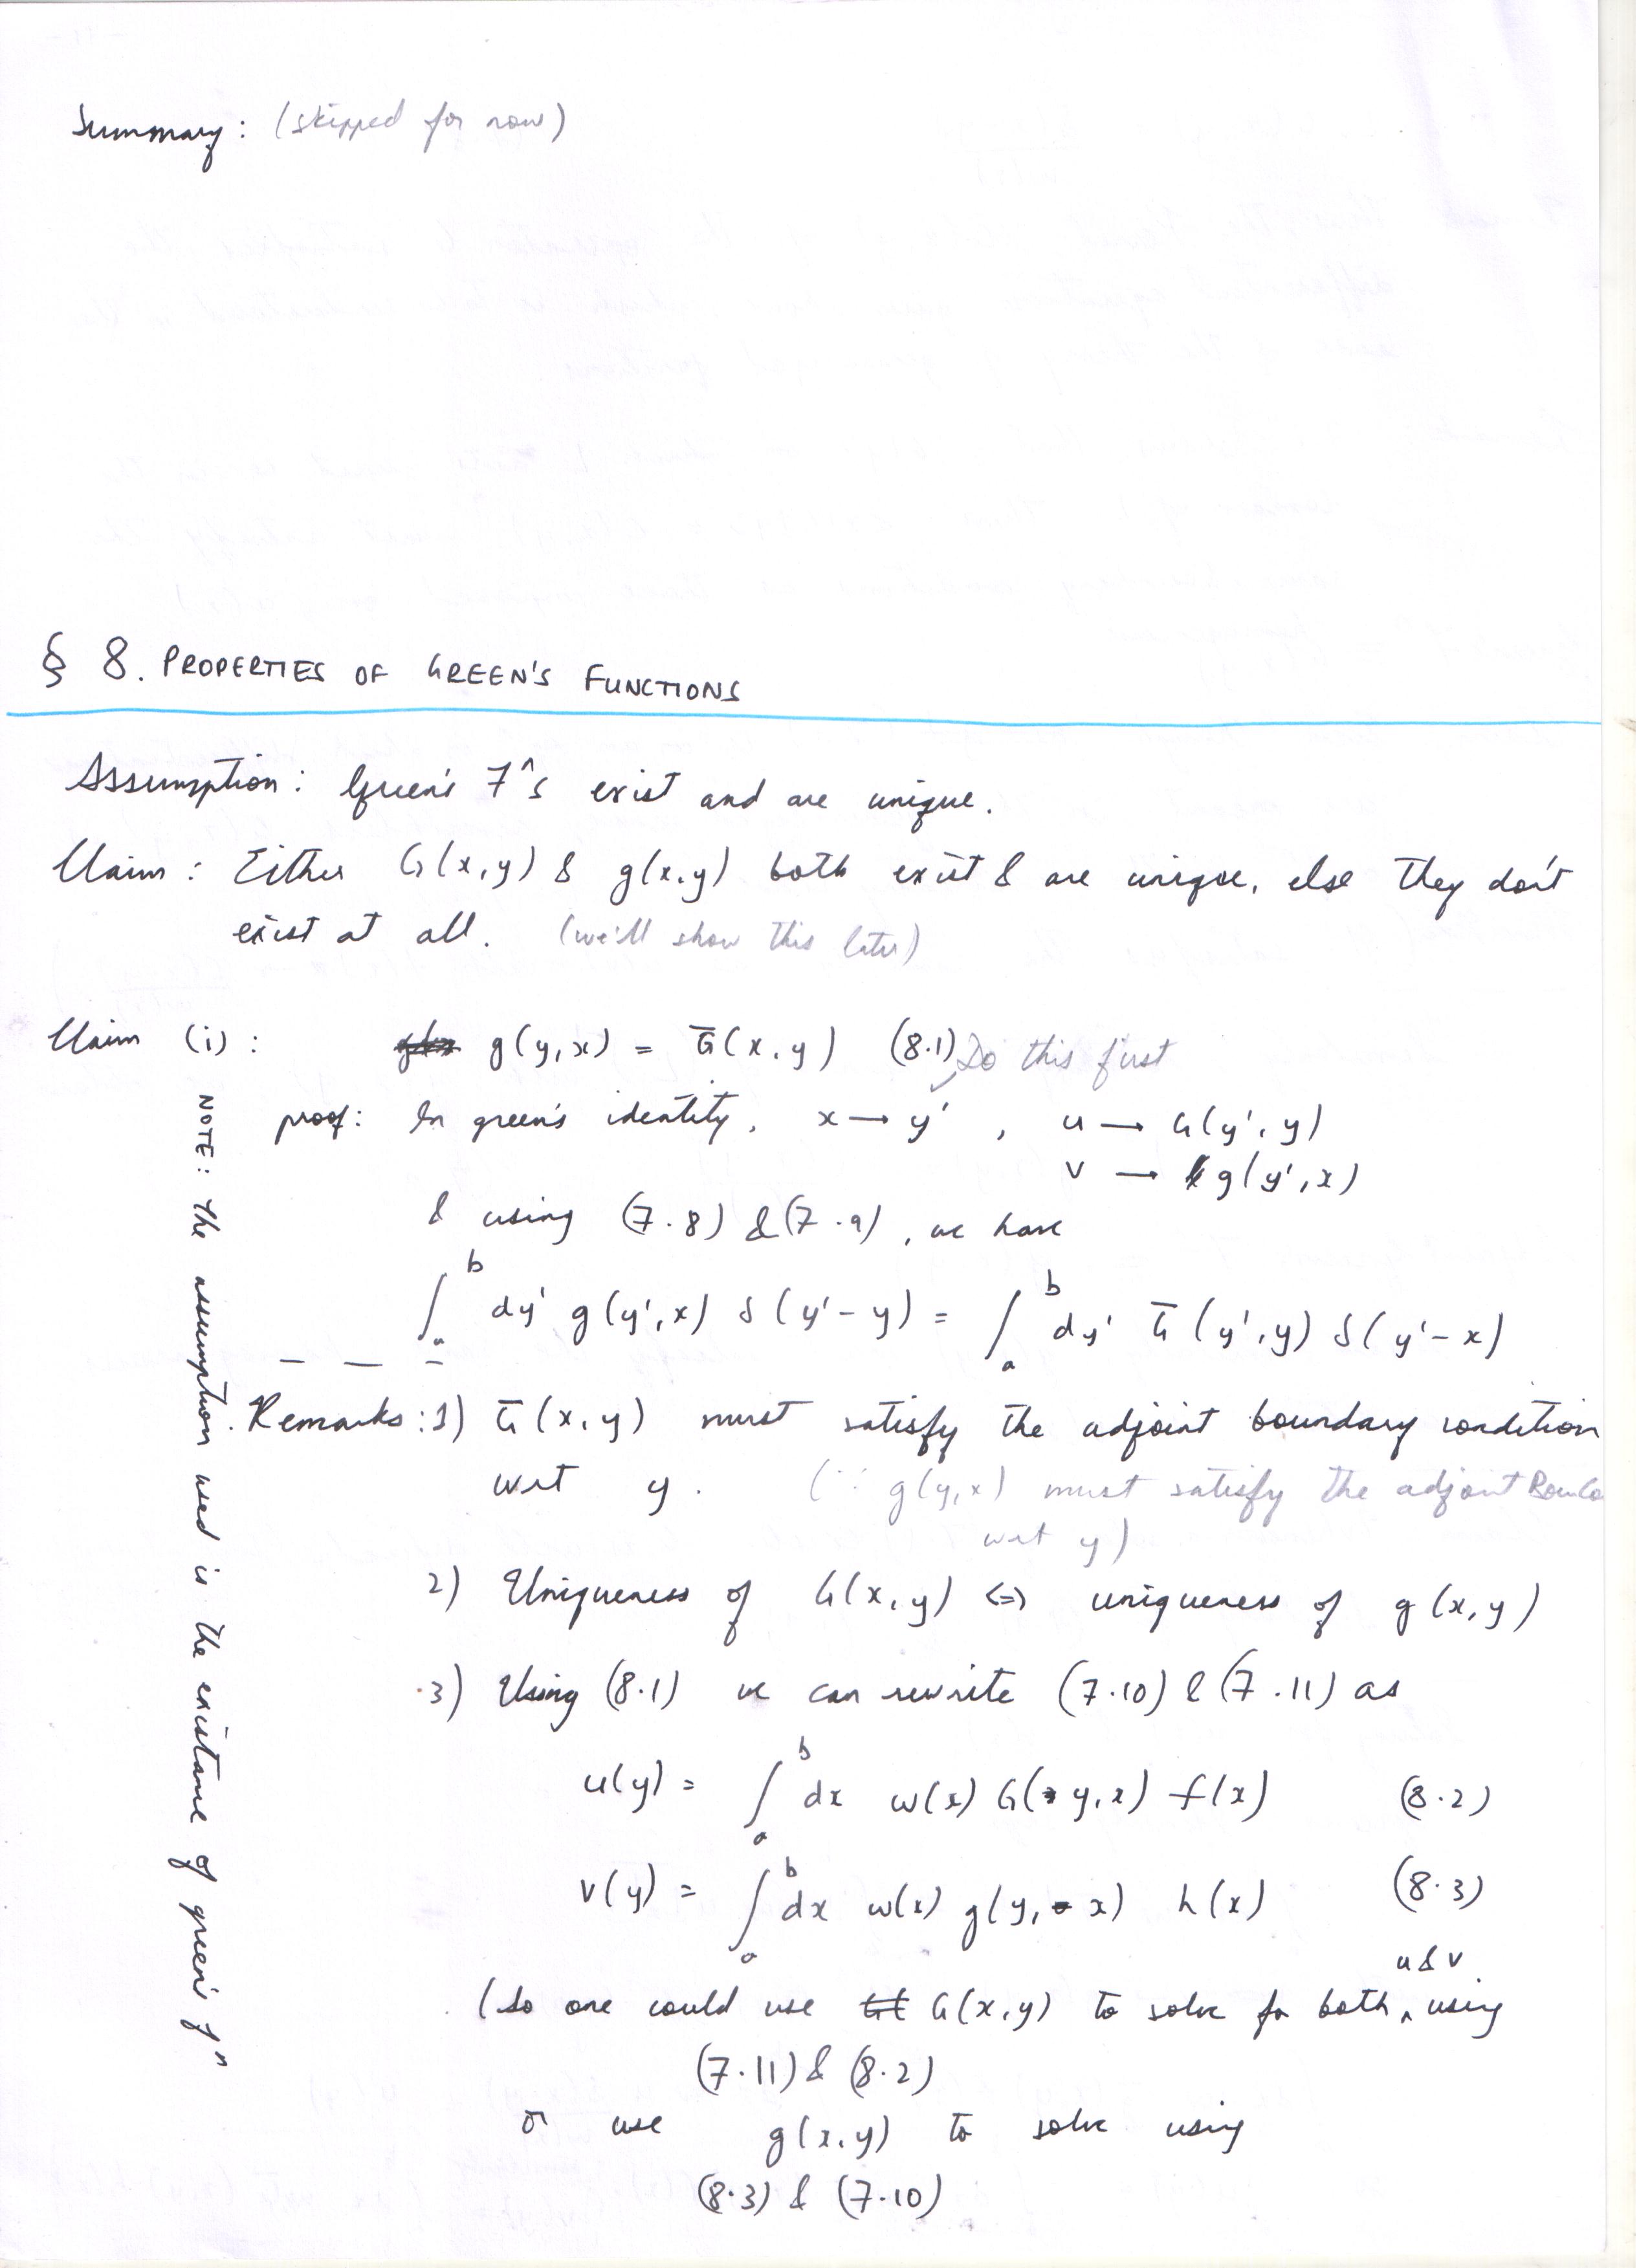 Summary: (skipped for now)
§ 8. PROPERTIES OF GREEN'S FUNCTIONS
Assumption: Green's Fⁿs exist and are unique.
Claim: Either G(x,y) & g(x,y) both exist & are unique, else they don't
exist at all. (we'll show this later)
Claim (i): g(y,x) = Ḡ(x,y) (8.1) Do this first
proof: In green's identity, x → y' , u → G(y',y)
v → g(y',x)
& using (7.8) & (7.9), we have
∫_a^b dy' g(y',x) δ(y'-y) = ∫_a^b dy' Ḡ(y',y) δ(y'-x)
Remarks: 1) Ḡ(x,y) must satisfy the adjoint boundary condition
wrt y. (∵ g(y,x) must satisfy the adjoint BounCo
wrt y)
2) Uniqueness of G(x,y) <=> uniqueness of g(x,y)
3) Using (8.1) we can rewrite (7.10) & (7.11) as
u(y) = ∫_a^b dx w(x) G(y,x) f(x) (8.2)
v(y) = ∫_a^b dx w(x) g(y,x) h(x) (8.3)
(so one could use G(x,y) to solve for both u & v, using
(7.11) & (8.2)
or use g(x,y) to solve using
(8.3) & (7.10)
NOTE: The assumption used is the existance of green's fⁿ.